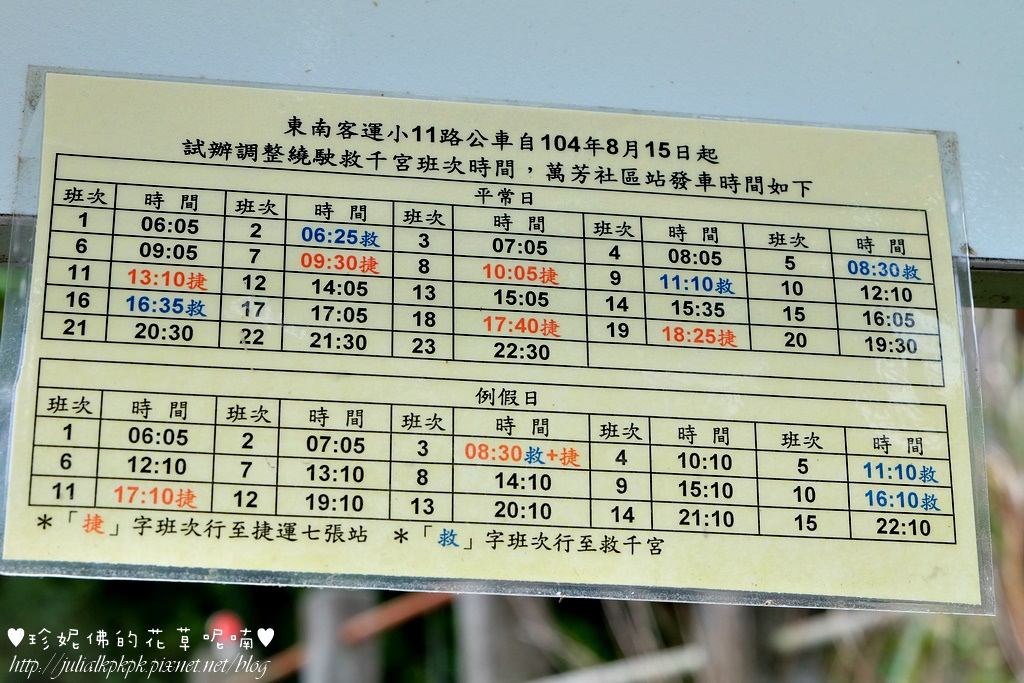 東南客運小11路公車自104年8月15日起
試辦調整繞駛救千宮班次時間，萬芳社區站發車時間如下
平常日
班次 時間 班次 時間 班次 時間 班次 時間 班次 時間
1 06:05 2 06:25救 3 07:05 4 08:05 5 08:30救
6 09:05 7 09:30捷 8 10:05捷 9 11:10救 10 12:10
11 13:10捷 12 14:05 13 15:05 14 15:35 15 16:05
16 16:35救 17 17:05 18 17:40捷 19 18:25捷 20 19:30
21 20:30 22 21:30 23 22:30
例假日
班次 時間 班次 時間 班次 時間 班次 時間 班次 時間
1 06:05 2 07:05 3 08:30救+捷 4 10:10 5 11:10救
6 12:10 7 13:10 8 14:10 9 15:10 10 16:10救
11 17:10捷 12 19:10 13 20:10 14 21:10 15 22:10
＊「捷」字班次行至捷運七張站 ＊「救」字班次行至救千宮
♥珍妮佛的花草呢喃♥
http://julialkpkpk.pixnet.net/blog